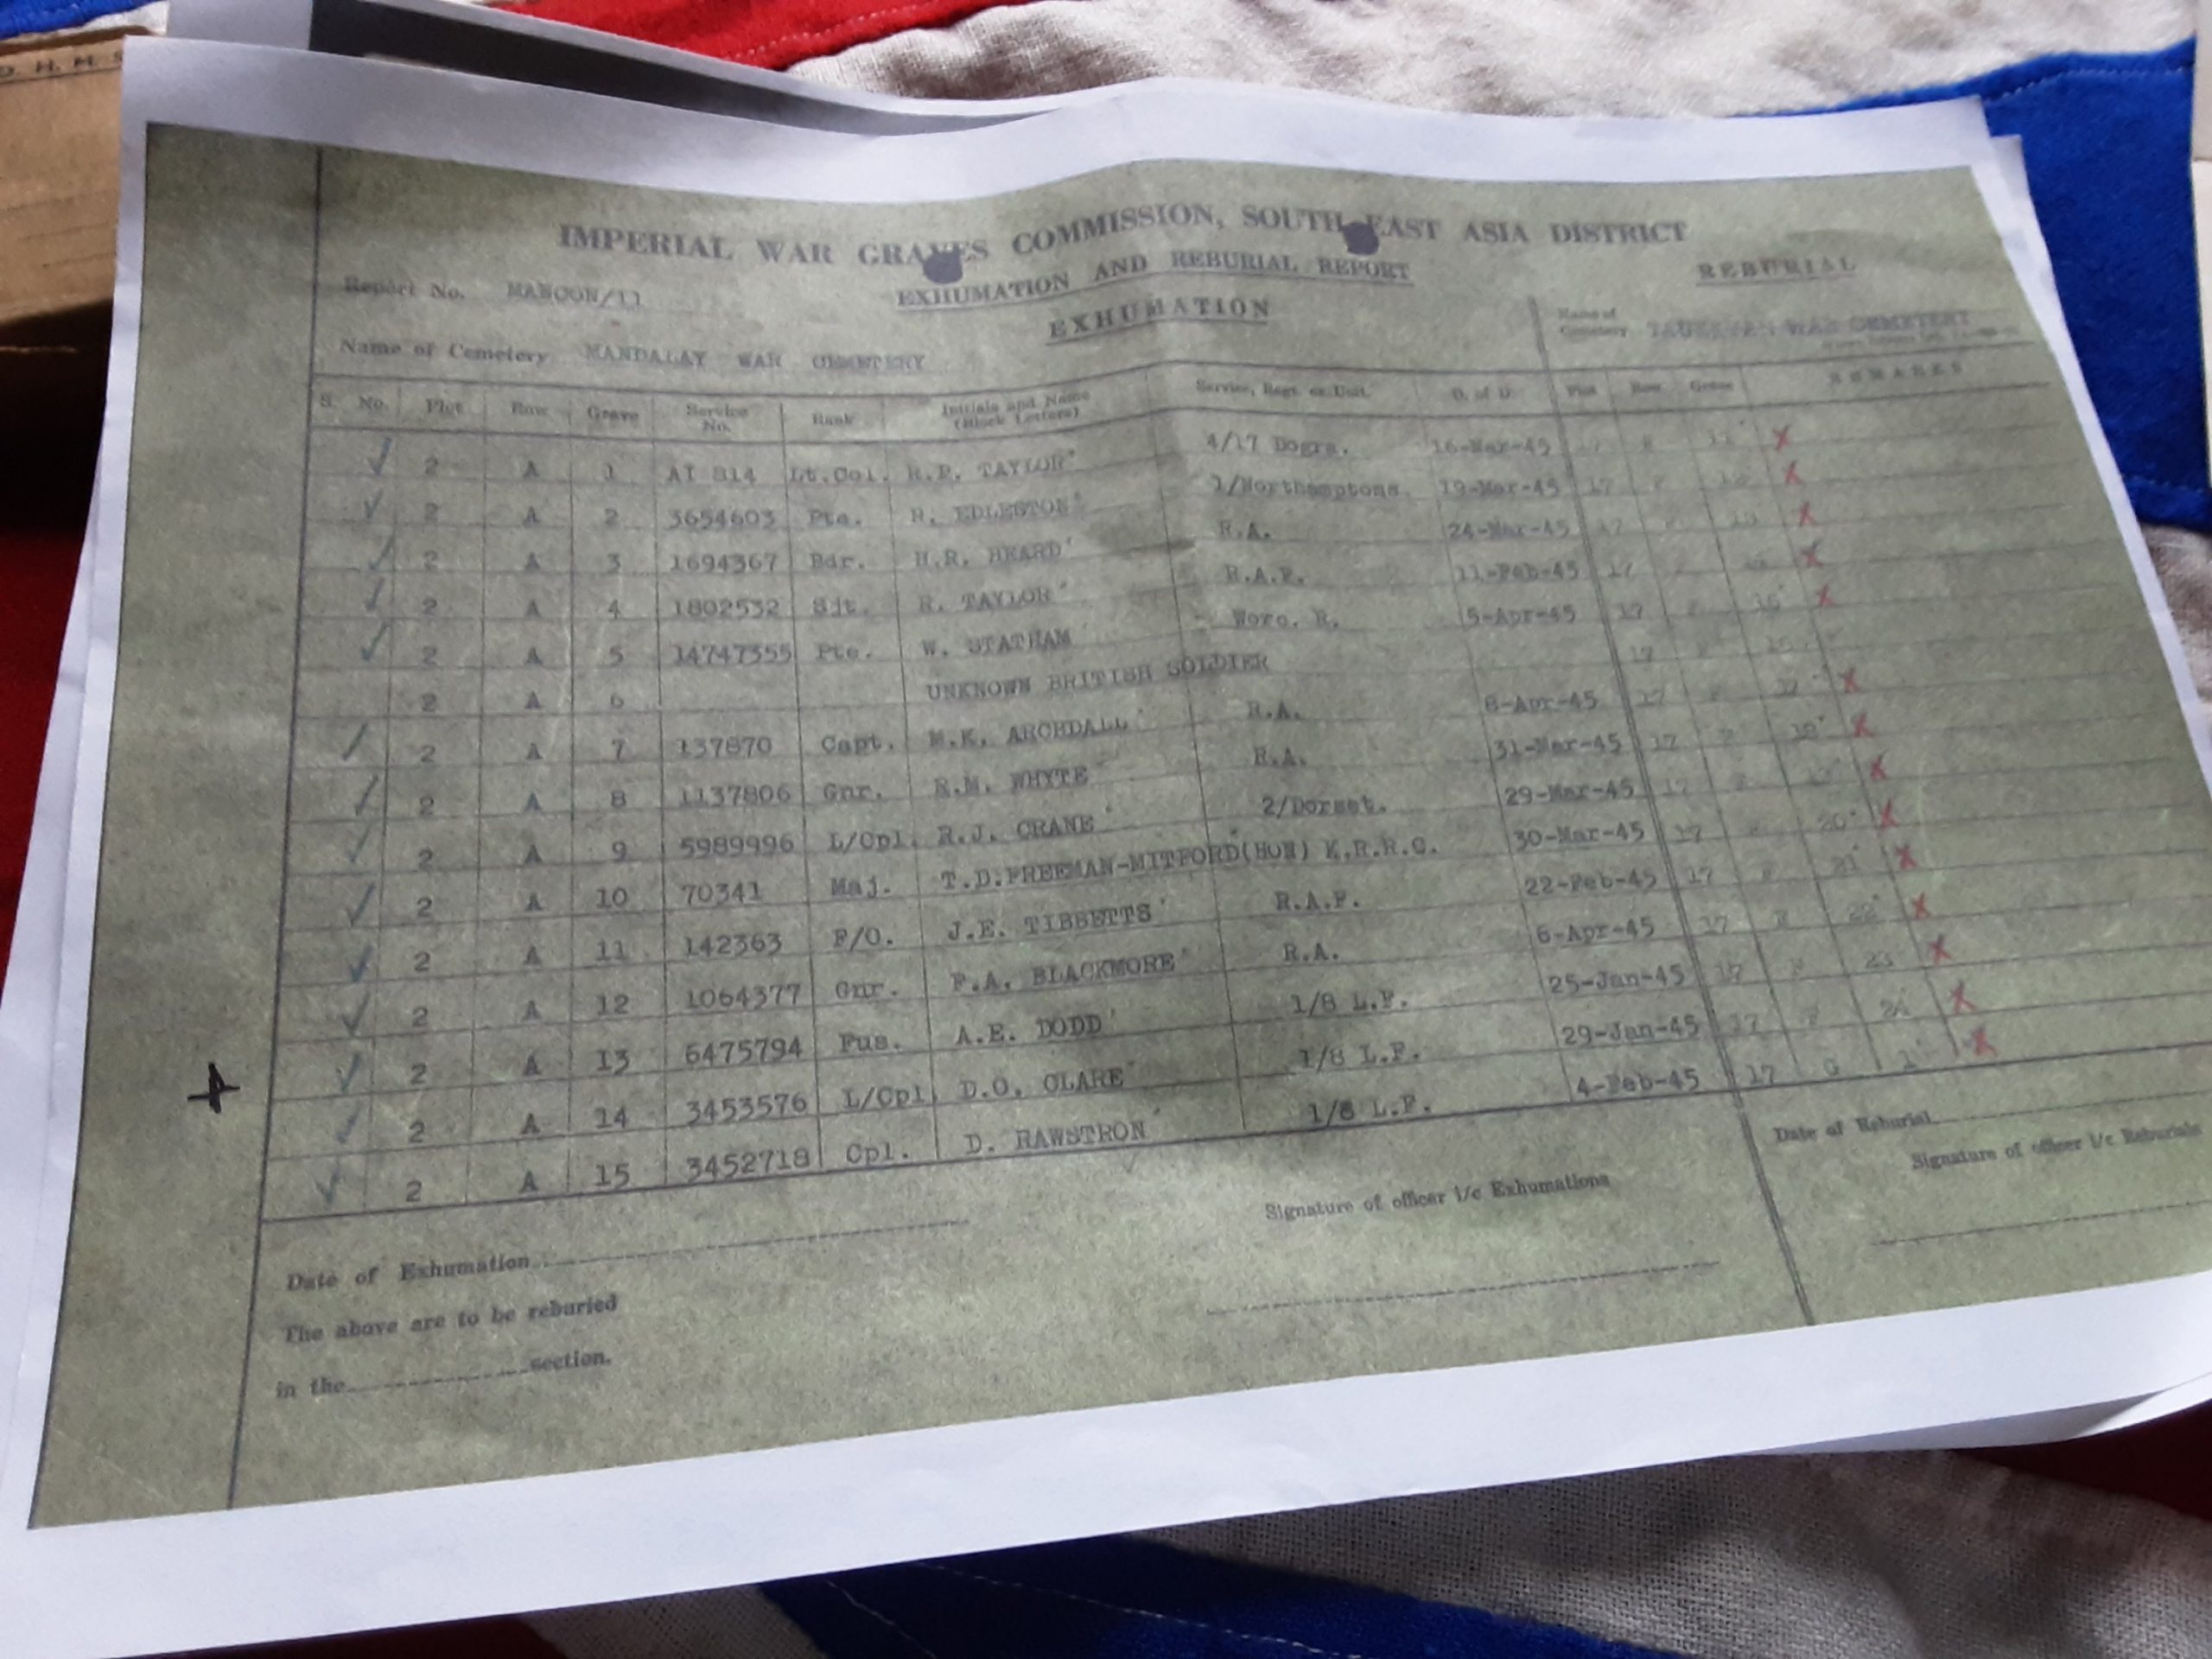 O. H. M. S
IMPERIAL WAR GRAVES COMMISSION, SOUTH EAST ASIA DISTRICT
EXHUMATION AND REBURIAL REPORT
REBURIAL
Report No.
EXHUMATION
Name of Cemetery MANDALAY WAR CEMETERY
Name of Cemetery WAR CEMETERY
S. No. Plot Row Grave Service No. Rank Initials and Name (Block Letters) Service, Regt. or Unit. D. of D. Plot Row Grave REMARKS
2 A 1 AI 814 Lt.Col. R.P. TAYLOR 4/17 Dogra. 16-Mar-45
2 A 2 3654603 Pte. R. EDLESTON 1/Northamptons. 19-Mar-45 17
2 A 3 1694367 Bdr. H.R. HEARD R.A. 24-Mar-45 17
2 A 4 1802532 Sjt. R. TAYLOR R.A.F. 11-Feb-45 17
2 A 5 14747355 Pte. W. STATHAM Worc. R. 5-Apr-45 17
2 A 6 UNKNOWN BRITISH SOLDIER 17
2 A 7 137870 Capt. M.K. ARCHDALL R.A. 8-Apr-45 17
2 A 8 1137806 Gnr. R.M. WHYTE R.A. 31-Mar-45 17
2 A 9 5989996 L/Cpl. R.J. CRANE 2/Dorset. 29-Mar-45 17
2 A 10 70341 Maj. T.D.FREEMAN-MITFORD(HON) K.R.R.C. 30-Mar-45 17 20
2 A 11 142363 F/O. J.E. TIBBETTS R.A.F. 22-Feb-45 17 21
2 A 12 1064377 Gnr. F.A. BLACKMORE R.A. 6-Apr-45 17 22
2 A 13 6475794 Fus. A.E. DODD 1/8 L.F. 25-Jan-45 17 23
2 A 14 3453576 L/Cpl. D.O. CLARE 1/8 L.F. 29-Jan-45 17 24
2 A 15 3452718 Cpl. D. RAWSTRON 1/8 L.F. 4-Feb-45 17 G 1
Date of Exhumation
Signature of officer i/c Exhumations
Date of Reburial
Signature of officer i/c Reburials
The above are to be reburied
in the section.